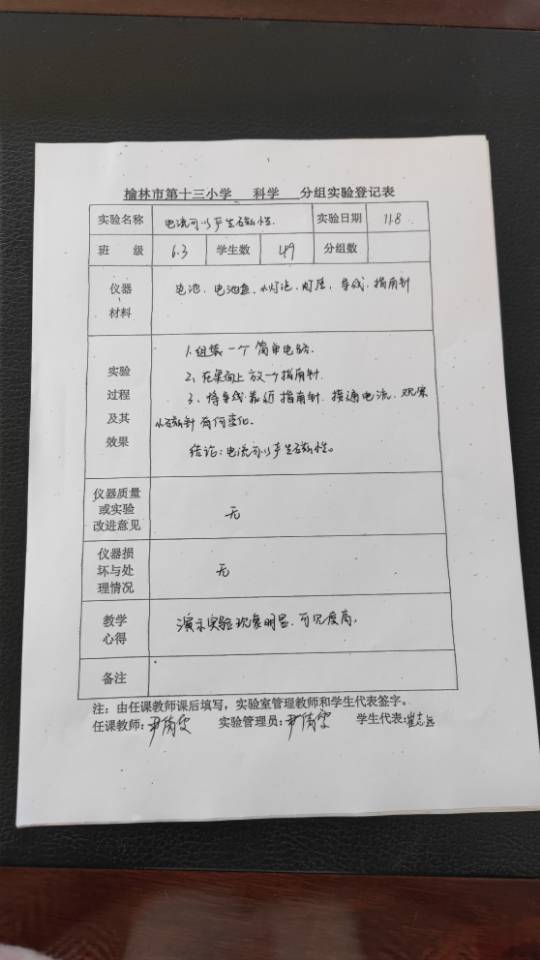 榆林市第十三小学 科学 分组实验登记表
实验名称 电流可以产生磁性. 实验日期 11.8
班 级 6.3 学生数 49 分组数
仪器
材料
电池、电池盒、小灯泡、灯座、导线、指南针
实验
过程
及其
效果
1.组装一个简单电路.
2、在桌面上放一个指南针.
3、将导线靠近指南针.接通电流.观察
小磁针有何变化.
结论:电流可以产生磁性。
仪器质量
或实验
改进意见
无
仪器损
坏与处
理情况
无
教学
心得
演示实验现象明显.可见度高.
备注
注:由任课教师课后填写,实验室管理教师和学生代表签字。
任课教师:尹倩雯 实验管理员:尹倩雯 学生代表:崔志远